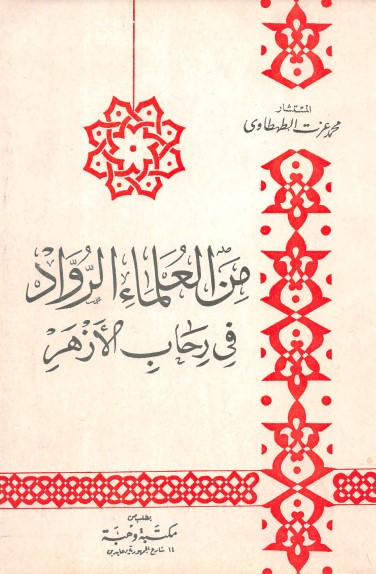 المستشار
محمد عزت الطهطاوى
مِنَ العُلَمَاءِ الرُّوَّادْ
فِي رِحَابِ الأَزْهَرِ
يطلب من
مكتبة وهبة
١٤ شارع الجمهورية - عابدين